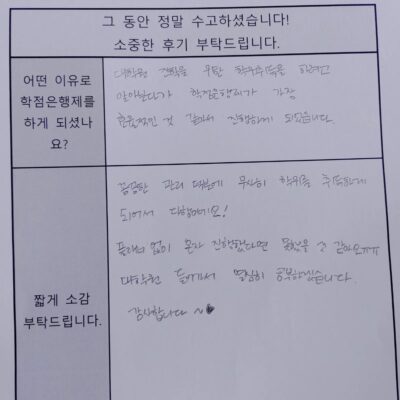 그 동안 정말 수고하셨습니다!
소중한 후기 부탁드립니다.
어떤 이유로
학점은행제를
하게 되셨나
요?
대학원 진학을 위한 학위취득을 하려고
알아보다가 학점은행제가 가장
효율적인 것 같아서 진행하게 되었습니다.
짧게 소감
부탁드립니다.
꼼꼼한 관리 덕분에 무사히 학위를 취득하게
되어서 다행이에요!
플래너 없이 혼자 진행했다면 못했을 것 같아요ㅠㅠ
대학원 들어가서 열심히 공부하겠습니다.
감사합니다 ~♥